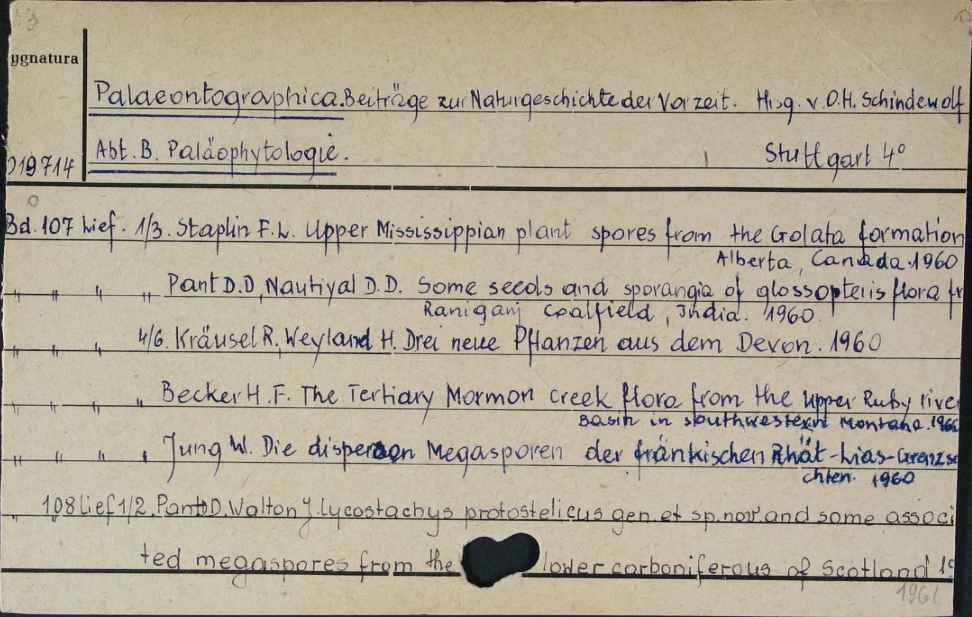 ygnatura
Palaeontographica. Beiträge zur Naturgeschichte der Vorzeit. Hrsg. v. O.H. Schindewolf
Abt. B. Paläophytologie. Stuttgart 4°
019714
Bd. 107 Lief. 1/3. Staplin F.L. Upper Mississippian plant spores from the Golata formation
Alberta, Canada. 1960
" " " " Pant D.D, Nautiyal D.D. Some seeds and sporangia of glossopteris flora fr
Raniganj Coalfield, India. 1960
" " " 4/6. Kräusel R, Weyland H. Drei neue Pflanzen aus dem Devon. 1960
" " " " Becker H.F. The Tertiary Mormon Creek flora from the upper Ruby rive
basin in southwestern Montana. 1960
" " " " Jung W. Die dispersen Megasporen der fränkischen Rhät-Lias-Grenzsc
chten. 1960
" 108 Lief 1/2. Pant D. Walton J. lycostachys protostelicus gen. et sp. nov. and some associ
ted megaspores from the lower carboniferous of Scotland 19
1961